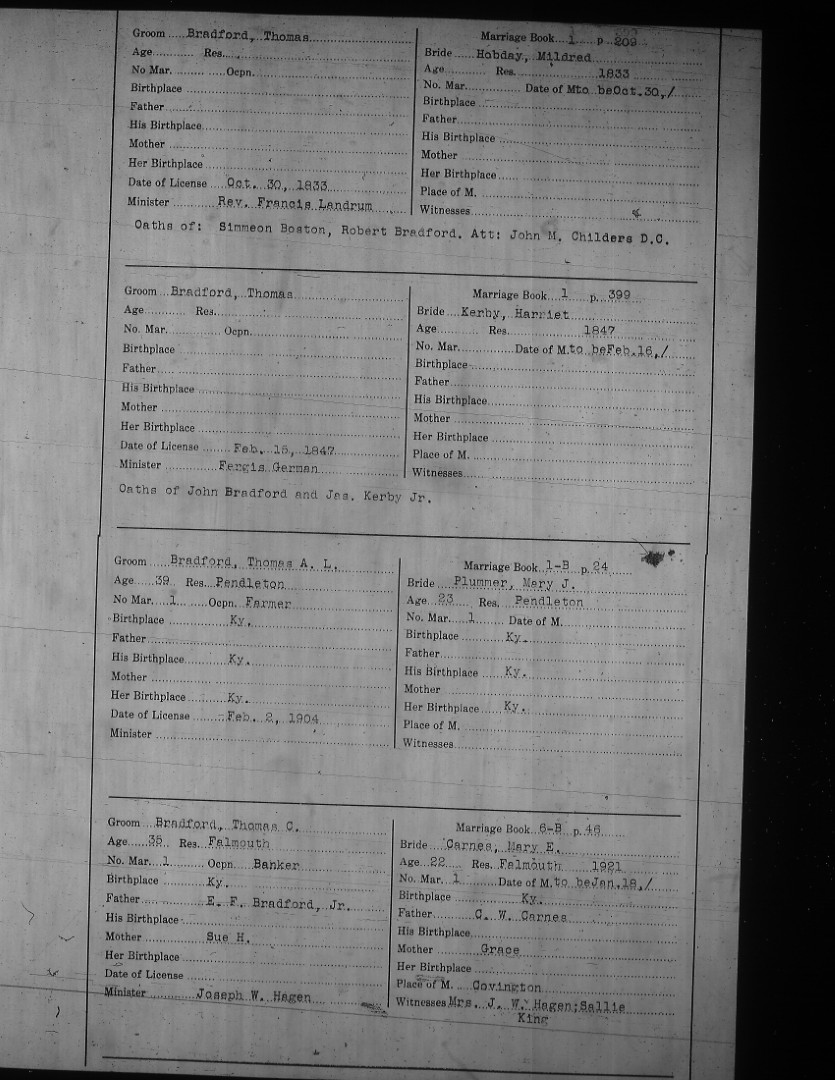 Groom Bradford, Thomas
Age Res.
No Mar. Ocpn.
Birthplace
Father
His Birthplace
Mother
Her Birthplace
Date of License Oct. 30, 1833
Minister Rev. Francis Landrum
Marriage Book 1 p 209
Bride Hobday, Mildred
Age Res. 1833
No. Mar. Date of M to be Oct. 30, /
Birthplace
Father
His Birthplace
Mother
Her Birthplace
Place of M.
Witnesses
Oaths of: Simmeon Boston, Robert Bradford. Att: John M. Childers D.C.
Groom Bradford, Thomas
Age Res.
No. Mar. Ocpn.
Birthplace
Father
His Birthplace
Mother
Her Birthplace
Date of License Feb. 15, 1847
Minister Fergis German
Marriage Book 1 p. 399
Bride Kerby, Harriet
Age Res. 1847
No. Mar. Date of M. to be Feb. 16, /
Birthplace
Father
His Birthplace
Mother
Her Birthplace
Place of M.
Witnesses
Oaths of John Bradford and Jas. Kerby Jr.
Groom Bradford, Thomas A. L.
Age 39 Res. Pendleton
No Mar. 1 Ocpn. Farmer
Birthplace Ky.
Father
His Birthplace Ky.
Mother
Her Birthplace Ky.
Date of License Feb. 2, 1904
Minister
Marriage Book 1-B p. 24
Bride Plummer, Mary J.
Age 23 Res. Pendleton
No. Mar. 1 Date of M.
Birthplace Ky.
Father
His Birthplace Ky.
Mother
Her Birthplace Ky.
Place of M.
Witnesses
Groom Bradford, Thomas C.
Age 35 Res. Falmouth
No. Mar. 1 Ocpn. Banker
Birthplace Ky.
Father E. F. Bradford, Jr.
His Birthplace
Mother Sue H.
Her Birthplace
Date of License
Minister Joseph W. Hagen
Marriage Book 6-B p. 46
Bride Carnes, Mary E.
Age 22 Res. Falmouth 1921
No. Mar. 1 Date of M. to be Jan. 19, /
Birthplace Ky.
Father C. W. Carnes
His Birthplace
Mother Grace
Her Birthplace
Place of M. Covington
Witnesses Mrs. J. W. Hagen; Sallie
King